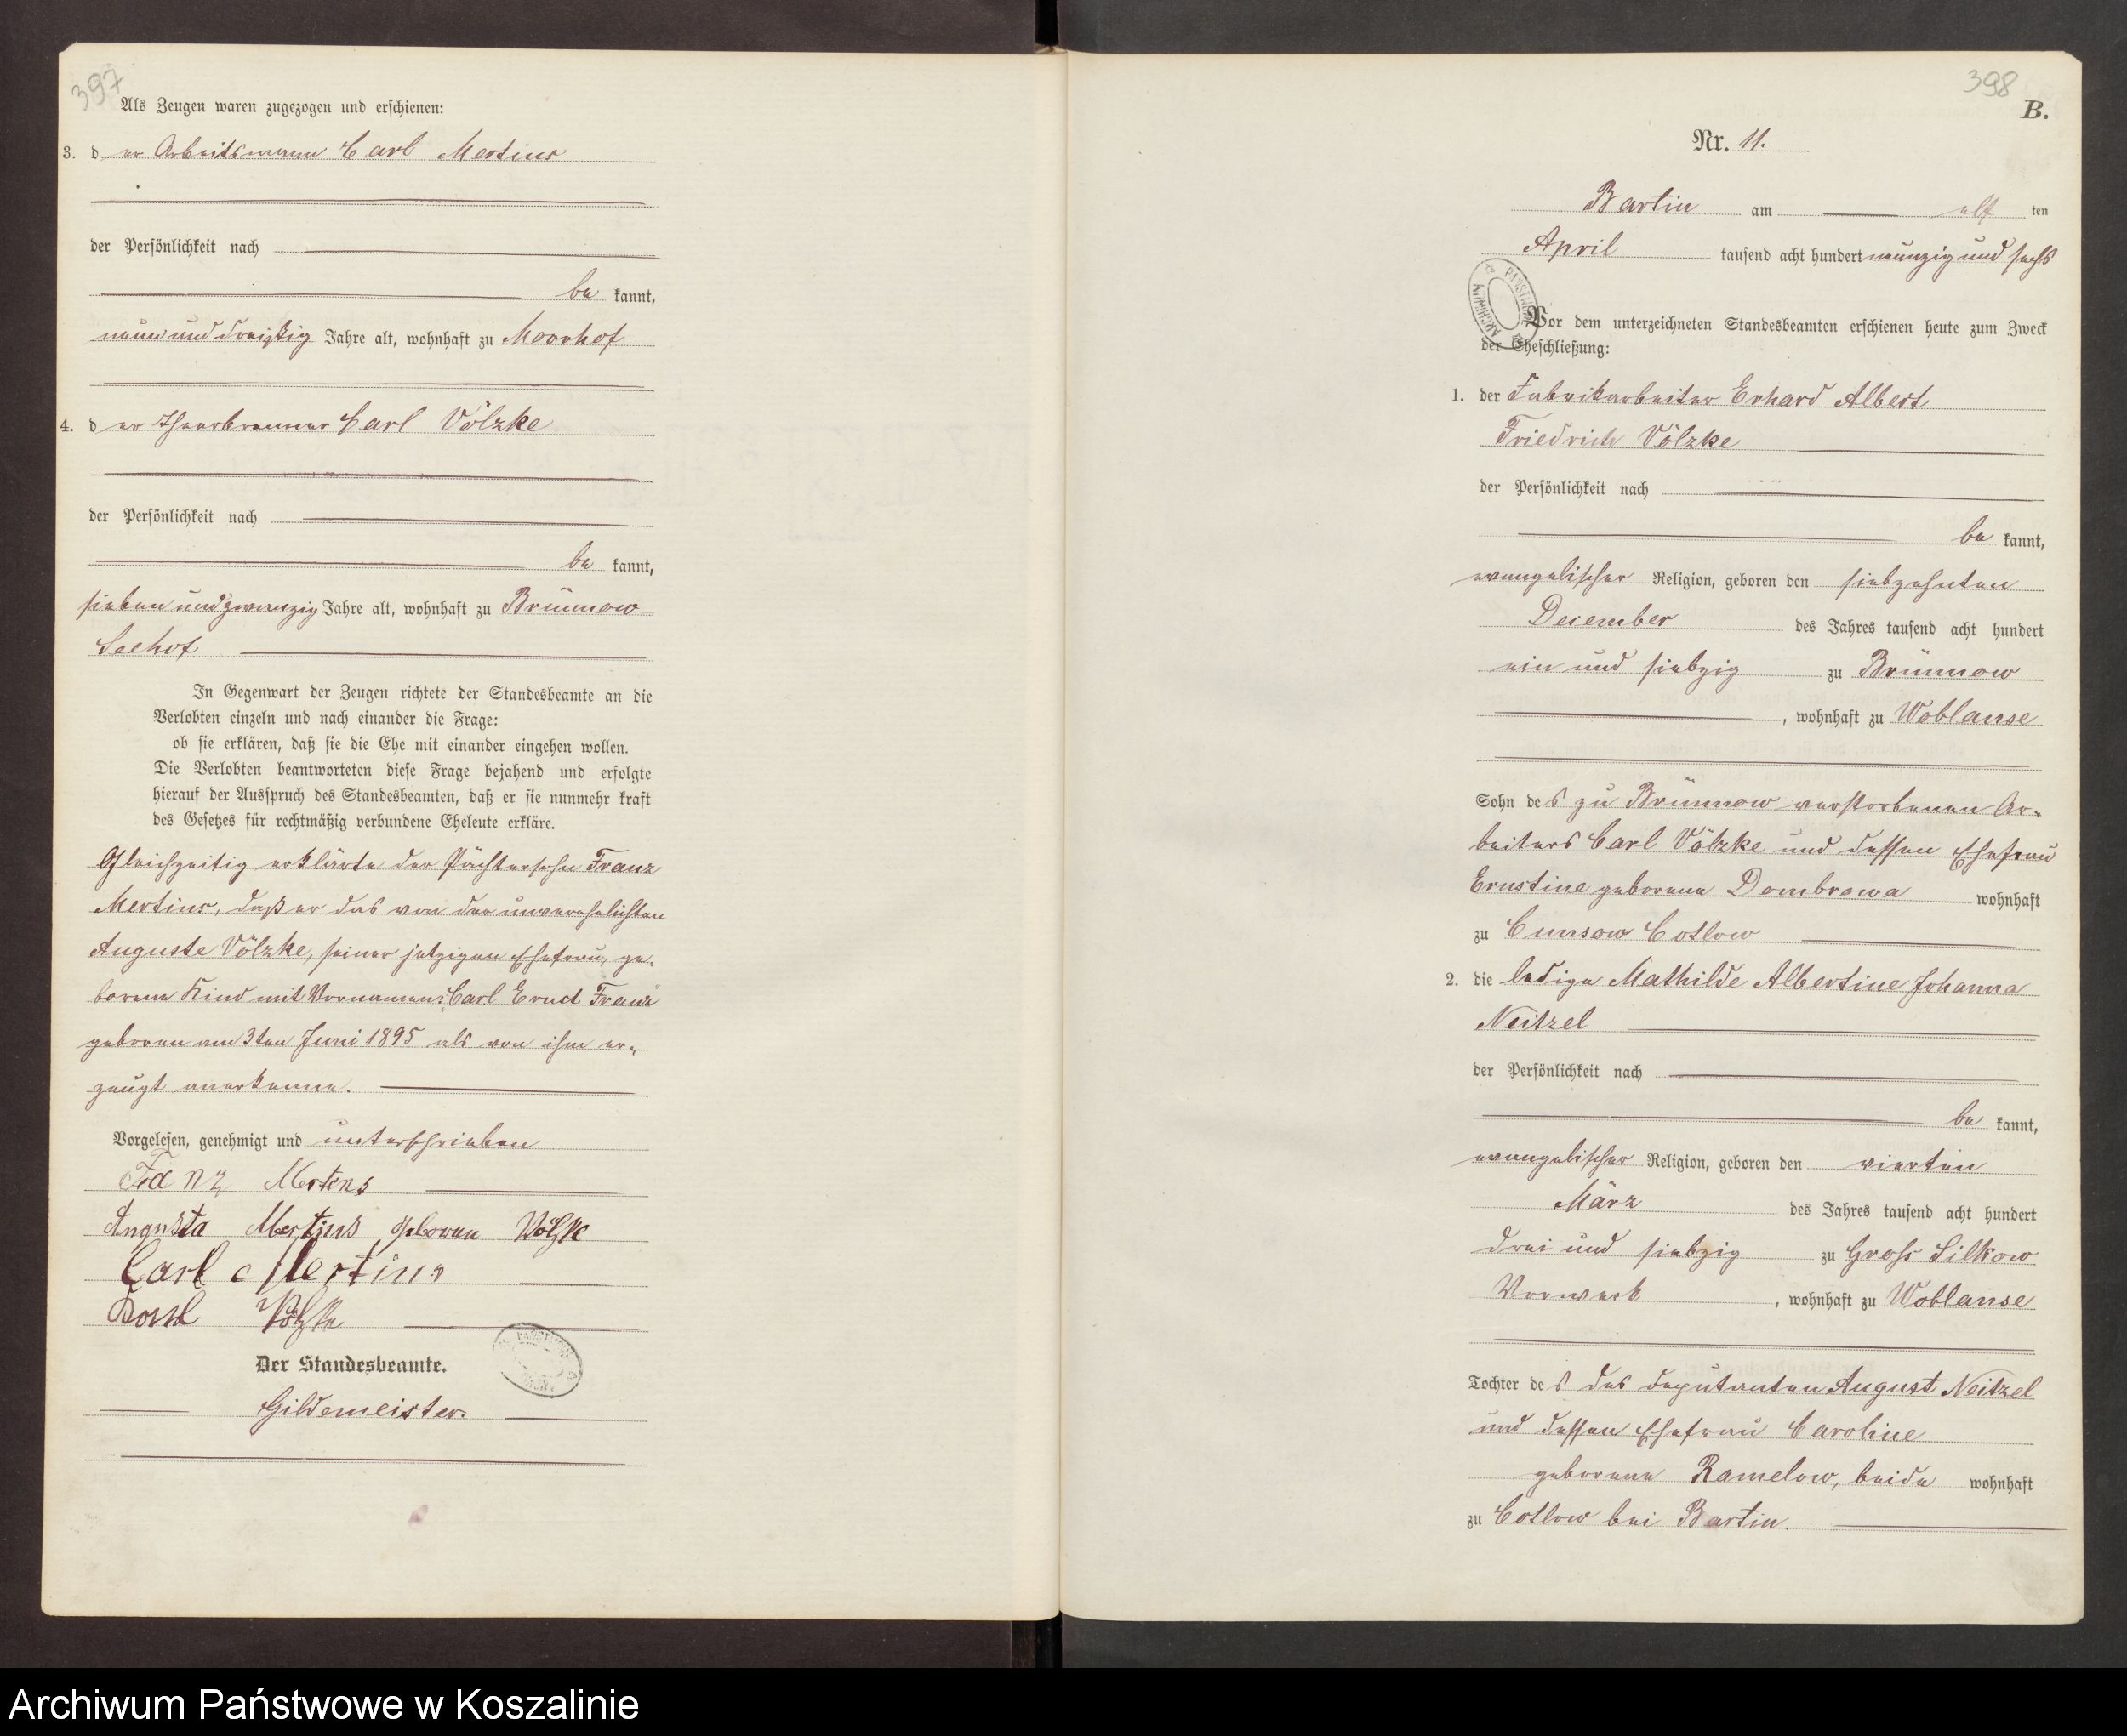 397
Als Zeugen waren zugezogen und erschienen:
3. d er Arbeitsmann Carl Mertins
der Persönlichkeit nach
be kannt,
neun und dreißig Jahre alt, wohnhaft zu Moorhof
4. d er Theerbrenner Carl Völzke
der Persönlichkeit nach
be kannt,
sieben und zwanzig Jahre alt, wohnhaft zu Brünnow
Seehof
In Gegenwart der Zeugen richtete der Standesbeamte an die
Verlobten einzeln und nach einander die Frage:
ob sie erklären, daß sie die Ehe mit einander eingehen wollen.
Die Verlobten beantworteten diese Frage bejahend und erfolgte
hierauf der Ausspruch des Standesbeamten, daß er sie nunmehr kraft
des Gesetzes für rechtmäßig verbundene Eheleute erkläre.
Gleichzeitig erklärte der Pächtersohn Franz
Mertins, daß er das von der unverehelichten
Auguste Völzke, seiner jetzigen Ehefrau, ge-
borene Kind mit Vornamen: Carl Ernst Franz
geboren am 3ten Juni 1895 als von ihm er-
zeugt anerkenne.
Vorgelesen, genehmigt und unterschrieben
Franz Mertens
Augusta Mertins geboren Völzke
Carl Mertins
Völzke
Der Standesbeamte.
Gildemeister.
398
B.
Nr. 11.
Bartin am elf ten
April tausend acht hundert neunzig und sechs
Vor dem unterzeichneten Standesbeamten erschienen heute zum Zweck
der Eheschließung:
1. der Fabrikarbeiter Erhard Albert
Friedrich Völzke
der Persönlichkeit nach
be kannt,
evangelischer Religion, geboren den siebzehnten
December des Jahres tausend acht hundert
ein und siebzig zu Brünnow
, wohnhaft zu Woblanse
Sohn des zu Brünnow verstorbenen Ar-
beiters Carl Völzke und dessen Ehefrau
Ernstine geborene Dombrowa wohnhaft
zu Cunsow Cotlow
2. die ledige Mathilde Albertine Johanna
Neitzel
der Persönlichkeit nach
be kannt,
evangelischer Religion, geboren den vierten
März des Jahres tausend acht hundert
drei und siebzig zu Gross Silkow
Vorwerk , wohnhaft zu Woblanse
Tochter des des Deputanten August Neitzel
und dessen Ehefrau Caroline
geborene Ramelow, beide wohnhaft
zu Cotlow bei Bartin.
Archiwum Państwowe w Koszalinie